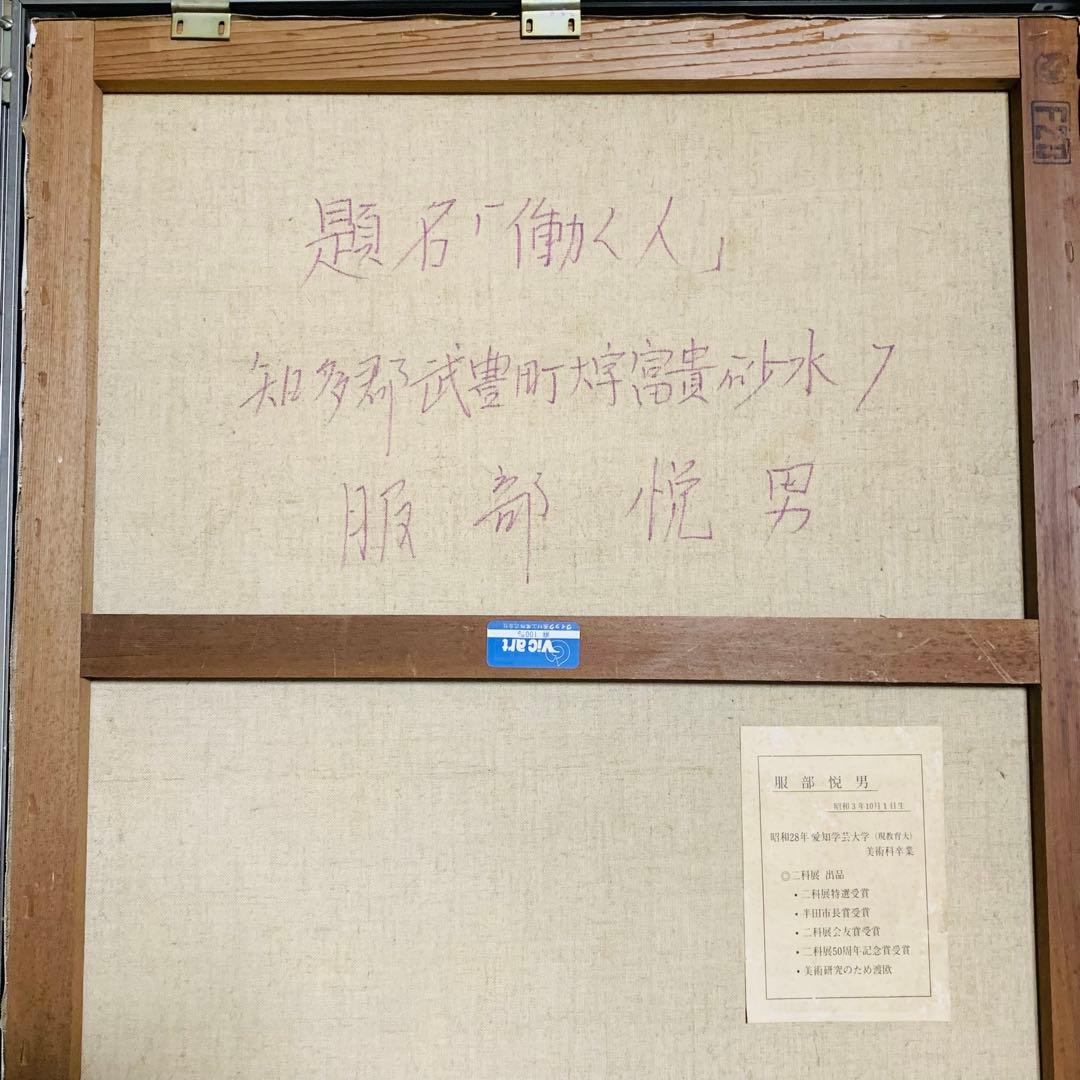 F20
題名「働く人」
知多郡武豊町大字富貴砂水7
服部 悦男
Vicart
麻 100%
服部悦男
昭和3年10月1日生
昭和28年 愛知学芸大学(現教育大)
美術科卒業
◎二科展 出品
・二科展特選受賞
・半田市長賞受賞
・二科展会友賞受賞
・二科展50周年記念賞受賞
・美術研究のため渡欧